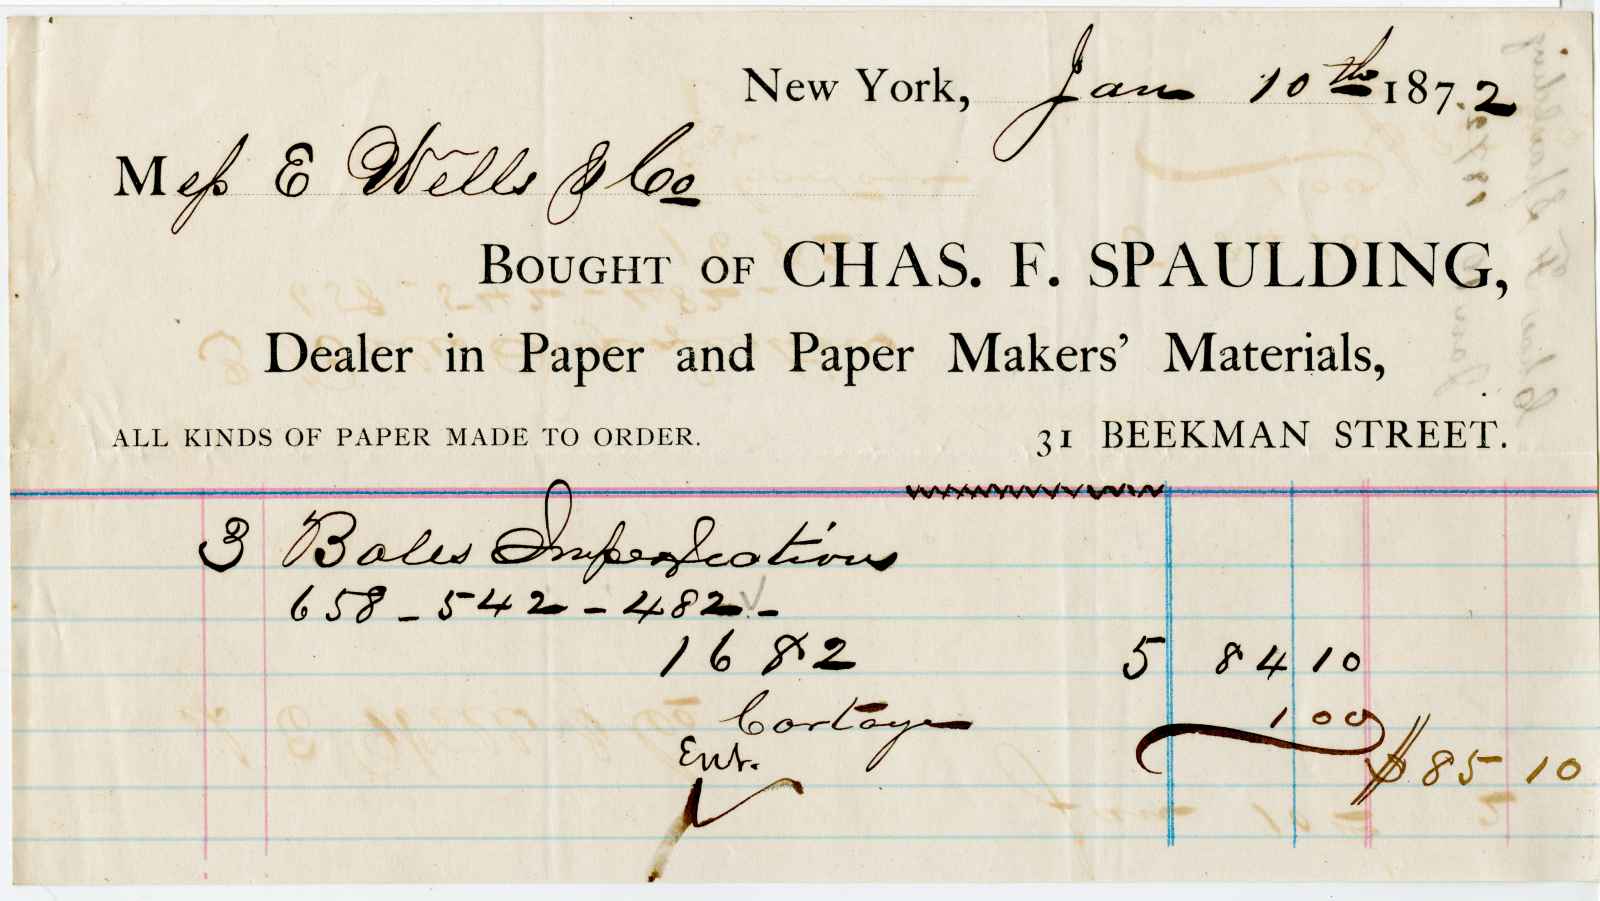 New York, Jan 10th 1872
Mess E Wells & Co
BOUGHT OF CHAS. F. SPAULDING,
Dealer in Paper and Paper Makers' Materials,
ALL KINDS OF PAPER MADE TO ORDER. 31 BEEKMAN STREET.
3 Bales Imperfections
658 - 542 - 482 -
1682 5 84 10
Cartage 1 00
Ent. $85 10